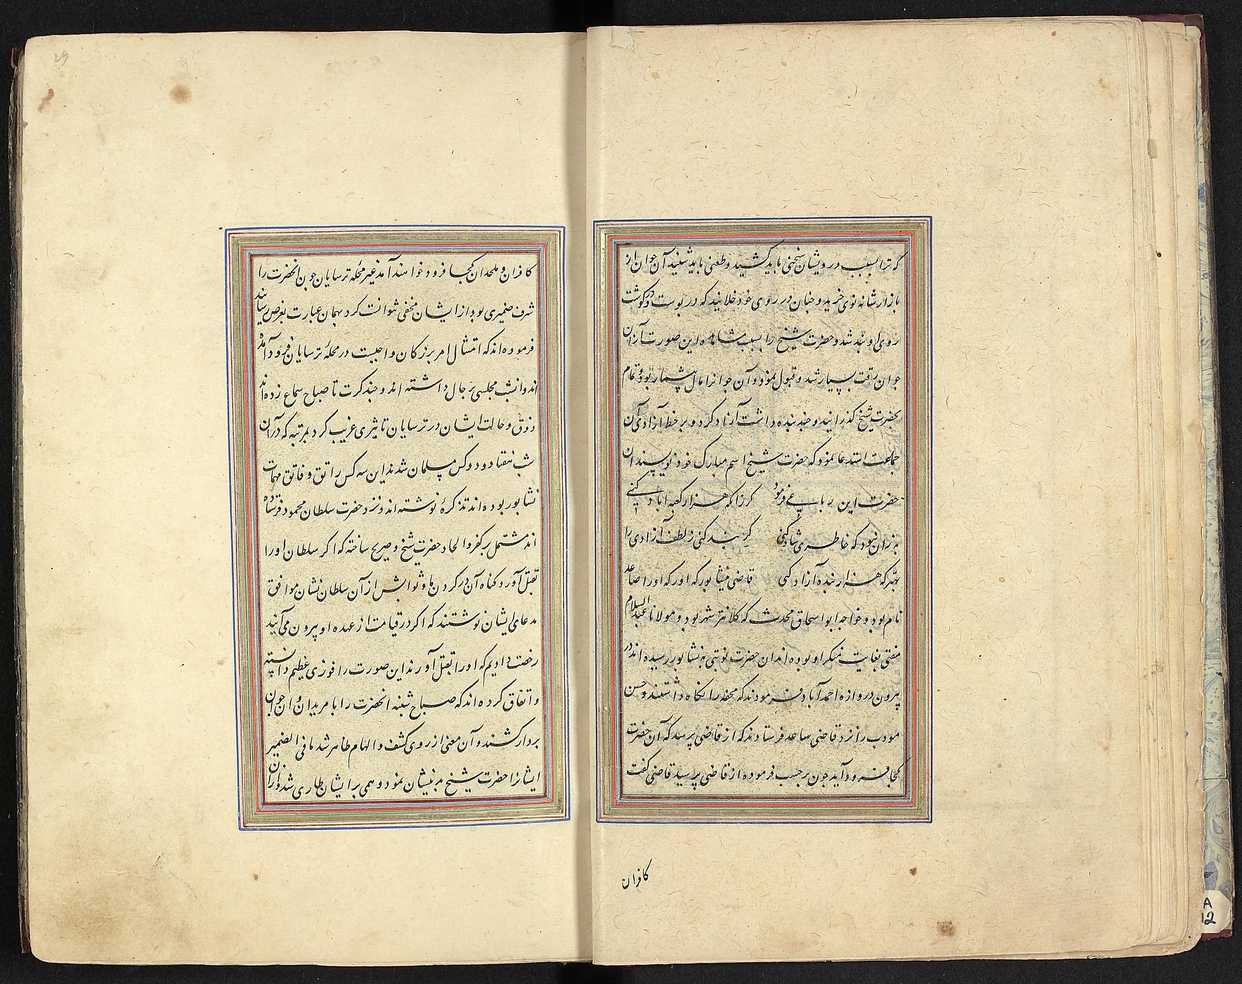 که ترا بسبب درویشان سختی باید کشید و طعنی باید شنید آن جوان از
بازار شانه نوی خرید و چنان در روی خود خلانید که در پوست و گوشت
روی او بند شد و حضرت شیخ را بسبب مشاهده این صورت از آن
جوان رقت بسیار شد و قبول نمود و آن جوانرا مال بیشمار بود تمام
بحضرت شیخ گذرانید و چند بنده داشت آزاد کرد و بر خط آزادی آن
جماعت استدعا نمود که حضرت شیخ اسم مبارک خود نویسند آن
حضرت این رباعی فرمود کرزا که هزار کعبه آباد کنی
به زان نبود که خاطری شاد کنی گر بنده کنی ز لطف آزادی را
بهتر که هزار بنده آزاد کنی قاضی نیشابور که او را صاعد
نام بود و خواجه ابو اسحاق محدث که کلانتر شهر بود و مولانا عبدالسلام
مفتی بغایت منکر او بوده اند آن حضرت نوبتی به نشابور رسیده اند در
بیرون دروازه احمدآباد فرمودند که محفه را نگاه داشتند و حسن
مودب را نزد قاضی صاعد فرستادند که از قاضی پرسد که آن حضرت
کجا فرود آید چون بر حسب فرموده از قاضی پرسید قاضی گفت
کافران
29
کافران و ملحدان کجا فرود خواهند آمد غیر محله ترسایان چون آنحضرت را
شرف ضمیری بود از ایشان مخفی نتوانست کرد بهمان عبارت بعرض رسانید
فرموده اند که امتثال امر بزرگان واجبست در محله ترسایان فرود آمده
اند و آنشب مجلسی بر حال داشته اند و چند کرت تا صباح سماع زده اند
ذوق و حالت ایشان در ترسایان تاثیری غریب کرد بمرتبه که در آن
شب هفتاد و دو کس مسلمان شدند این سه کس راتق و فاتق مهمات
نشابور بوده اند تذکره نوشته اند و نزد حضرت سلطان محمود فرستاده
اند مشتمل بر کفر و الحاد حضرت شیخ و صریح ساخته که اگر سلطان او را
بقتل آورد گناه آن در گردن ما و ثوابش از آن سلطان نشان موافق
مدعای ایشان نوشتند که اگر در قیامت از عهده او بیرون می آیند
رخصت دادیم که او را بقتل آورند این صورت را فوزی عظیم دانسته
و اتفاق کرده اند که صباح شنبه آنحضرت را با مریدان و آن جوان
بردار کشند و آن معنی از روی کشف و الهام ظاهر شد ما فی الضمیر
ایشانرا حضرت شیخ بر ایشان طاری شد و از آن
A
12